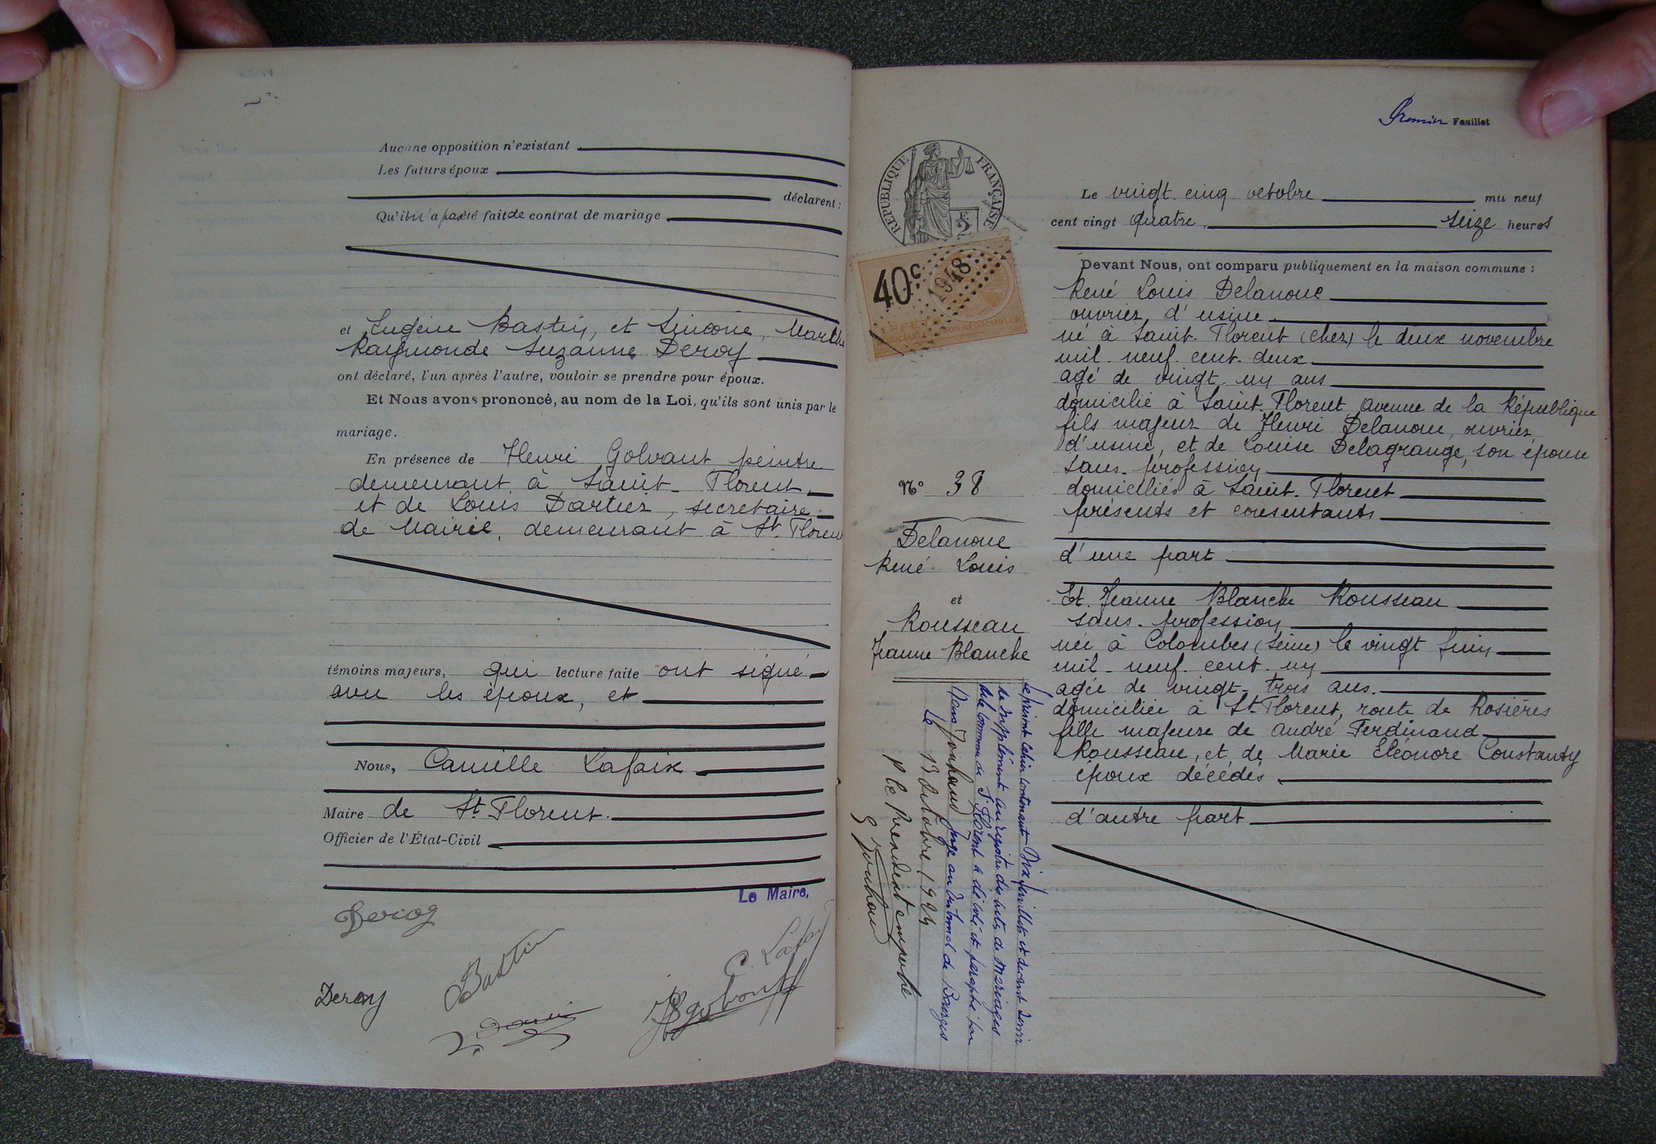 Aucune opposition n'existant
Les futurs époux
déclarent :
Qu'il n'a pas été fait de contrat de mariage
et Eugène Bastin, et Simone, Marthe
Raymonde Suzanne Deroy
ont déclaré, l'un après l'autre, vouloir se prendre pour époux.
Et Nous avons prononcé, au nom de la Loi, qu'ils sont unis par le
mariage.
En présence de Henri Golvant peintre
demeurant à Saint-Florent,
et de Louis Dartier, secrétaire
de Mairie, demeurant à St Florent
témoins majeurs, qui lecture faite ont signé
avec les époux, et
Nous, Camille Lafaix
Maire de St Florent.
Officier de l'État-Civil
Le Maire,
Deroy
Bastin
C Lafaix
Deroy
Premier Feuillet
RÉPUBLIQUE FRANÇAISE
40c
1948
Le vingt cinq octobre mil neuf
cent vingt quatre, seize heures
Devant Nous, ont comparu publiquement en la maison commune :
René Louis Delanoue
ouvrier d'usine
né à Saint-Florent (Cher) le deux novembre
mil neuf cent deux
agé de vingt-un ans
domicilié à Saint-Florent, avenue de la République
fils majeur de Henri Delanoue, ouvrier
d'usine, et de Louise Delagrange, son épouse
sans profession
domiciliés à Saint-Florent
présents et consentants
d'une part
Et Jeanne Blanche Rousseau
sans profession
née à Colombes (Seine) le vingt juin
mil neuf cent un
agée de vingt-trois ans.
domiciliée à St Florent, route de Rosières
fille majeure de André Ferdinand
Rousseau, et de Marie Eléonore Constanty
époux décédés
d'autre part
No 38
Delanoue
René Louis
et
Rousseau
Jeanne Blanche
Le présent cahier contenant dix feuillets et devant servir
de supplément au registre des actes de Mariages
de la commune de St Florent a été coté et paraphé par
Nous juge au tribunal de Bourges
Le 13 Octobre 1924
P le Président empêché